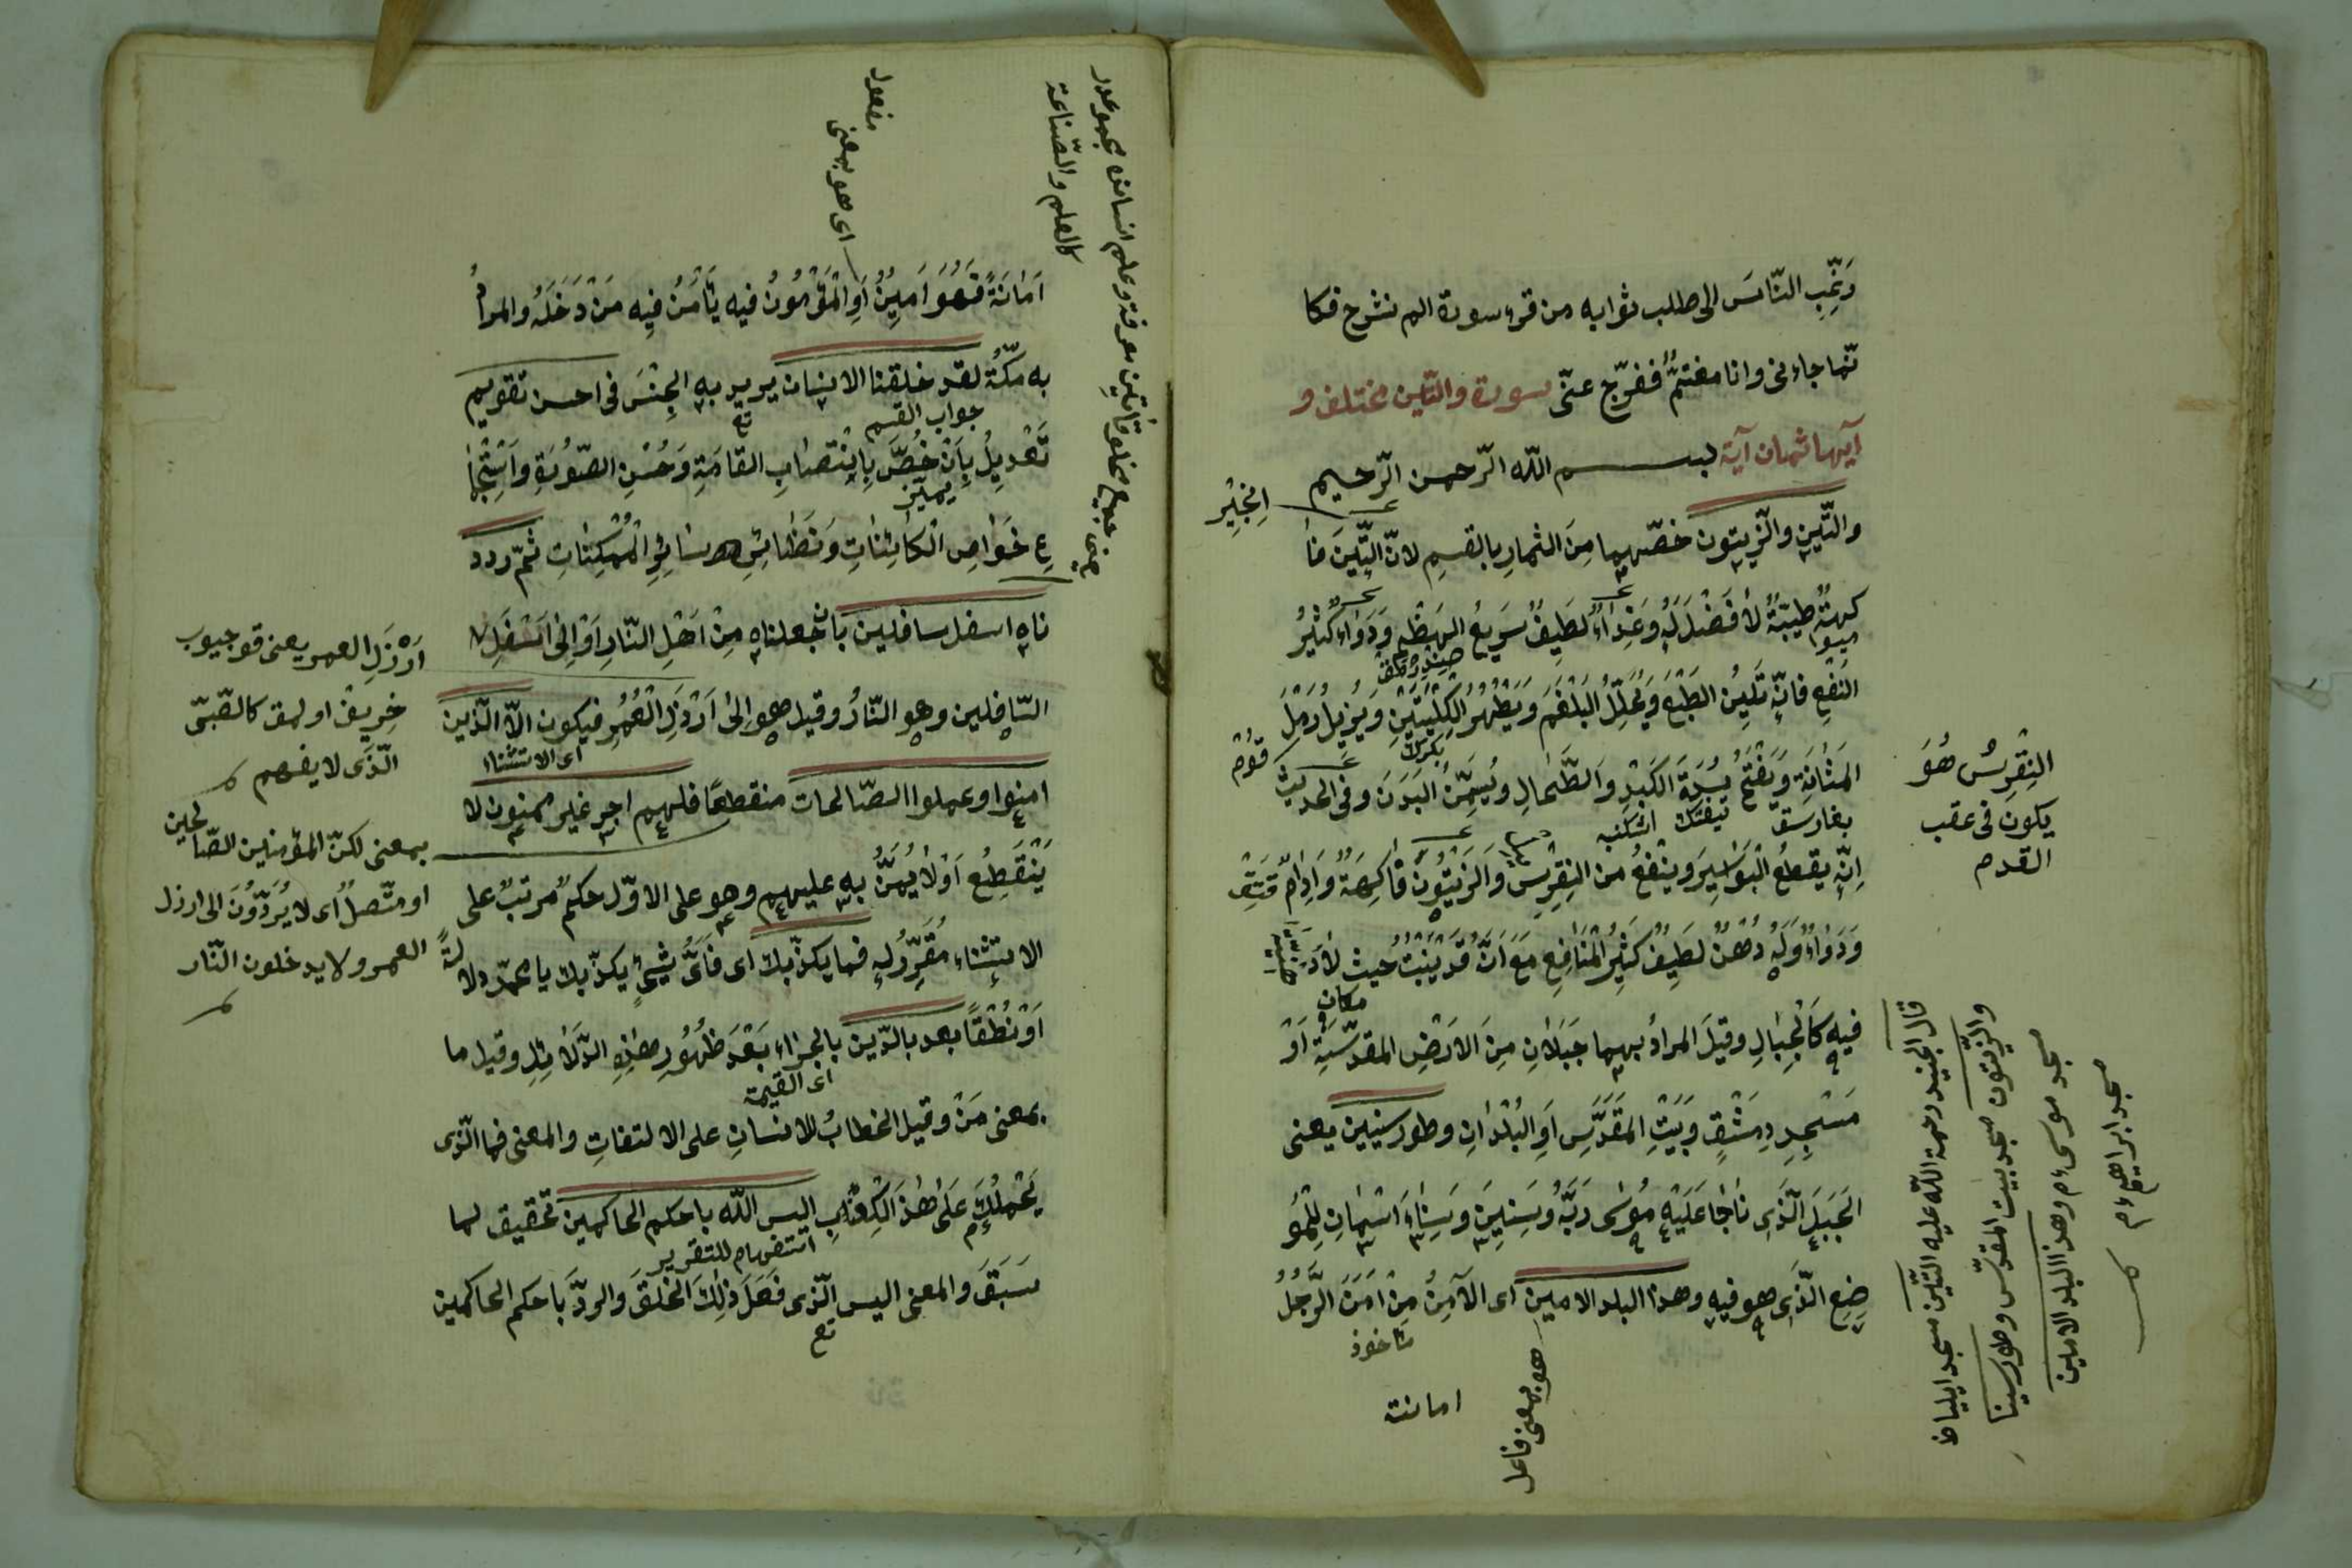 رَغِّبِ النّاسَ الى طلب ثوابه من قرء سورة الم نشرح فكا
نّما جاءنى وانا مغتمٌّ ففرّج عنّى سورة والتّين مختلف و
آيها ثمان آية بسم اللّه الرّحمن الرّحيم
والتّين والزّيتون خصّهما مِنَ الثمارِ بالقسمِ لانّ التِّينَ فا
كهةٌ طيّبةٌ لا فَضْلَ لَهُ وَغِذاءٌ لَطِيفٌ سَرِيعُ الهَضْمِ وَدَواءٌ كثيرُ
النَفْعِ فانّه تَلِينُ الطَبْعَ وَيُحَلِّلُ البَلْغَمَ وَيُطَهِّرُ الكِلْيَتَيْنِ وَيُزِيلُ رَمْلَ
المَثانَةِ وَيَفْتَحُ سُدَّةَ الكَبِدِ وَالطَّحالِ وَيُسَمِّنُ البَدَنَ وفى الحديث
اِنّه يقطعُ البَوَاسِيرَ وينْفعُ من النِقْرِسِ وَالزَيْتُونُ فاكِهَةٌ وَاِدامٌ
وَدَوَاءٌ وَلَهُ دُهْنٌ لَطِيفٌ كَثِيرُ المَنَافِعِ مَعَ اَنَّهُ قَدْ يَنْبُتُ حيث لا
فيه كَالْجِبَالِ وقيلَ المرادُ بهما جَبَلانِ مِنَ الاَرْضِ المقدّسَةِ اَوْ
مَسْجِدِ دِمَشْقٍ وَبَيْتِ المقَدَّسِ اَوِ البُلْدَانِ وطور سينين يعنى
الجَبَلَ الَّذِى ناجا عَلَيْهِ مُوسٰى رَبَّهُ وَسِينِينَ وَسِينَاءَ اسْمانِ لِلْمَوْ
ضِعِ الّذِى هو فيه وهذا البلد الامين اى الآمِنُ مِنْ اَمَنَ الرَّجُلُ
اِنْجِير
ميوه
مكان
مأخوذ
امانت
هو بمعنى فاعل
النِقْرِسُ هُوَ
يكون فى عقب
القدم
قال الجنيد رحمة اللّه عليه التّين مسجد ايليا
والزّيتون مسجد بيت المقدّس وطور سينا
مسجد موسى ءم وهذا البلد الامين
مسجد ابراهيم ءم
اَمَانَةً فَهُوَ اَمِينٌ اَوِ المَأْمُونُ فيه يَأمَنُ فِيهِ مَنْ دَخَلَهُ والمرادُ
به مكّةُ لقد خلقنا الانسان يريد به الجِنْسَ فى احسن تقويم
تَعْدِيلٍ بِاَنْ خُصَّ بِانْتِصَابِ القامَةِ وَحُسْنِ الصّورَةِ وَاسْتِجْمَا
عِ خَواصِ الكَائِنَاتِ وَنَظَائِرِ سَائِرِ المُمْكِنَاتِ ثمّ ردد
ناه اسفل سافلين بان جعلناه مِنْ اَهْلِ النّارِ اَوْ اِلى اَسْفَلِ
السّافِلين وهو النّارُ وقيل هو اِلىٰ اَرْذَلِ العُمُرِ فيكون الاّ الّذين
امنوا وعملوا الصّالحات منقطعًا فلهم اجر غير ممنون لا
يَنْقَطِعُ اَوْ لا يُمَنُّ بِه عليهم وهو على الاوّل حكمٌ مرتبٌ على
الاستِثْناءِ مُقَرِّرٌ لِهِ فما يكذّبك اى فَاَىُّ شَيْءٍ يكذّبك يا محمّد دلالةً
اَوْ نُطْقًا بعد بالدّين بالجزاءِ بَعْدَ ظُهُورِ هذهِ الدّلائِلِ وقيل ما
بمعنى مَنْ وقيل الخطابُ للانسانِ على الالتفاتِ والمعنى فما الّذى
يَحْمِلُكَ عَلَى هٰذَا الكِذْبِ اليس اللّه باحكم الحاكمين تحقيق لما
سَبَقَ وَالمعنى اليس الّذى فَعَلَ ذٰلِكَ الخَلْقَ والردَّ بَاحكم الحاكمين
مفعول
اى هو بمعنى
كالعلم والصّناعة
جواب القسم
اى الاستثنا
اى القيمة
استفهام للتقرير
اَرْذَلِ العمر يعنى قوجيوب
خِرِيف اولمق كالصّبىّ
الّذى لا يفهم
بمعنى لكنّ المؤمنين الصّالحين
او متّصلٌ اى لا يُرَدُّونَ الى ارذل
العمر ولا يدخلون النّار